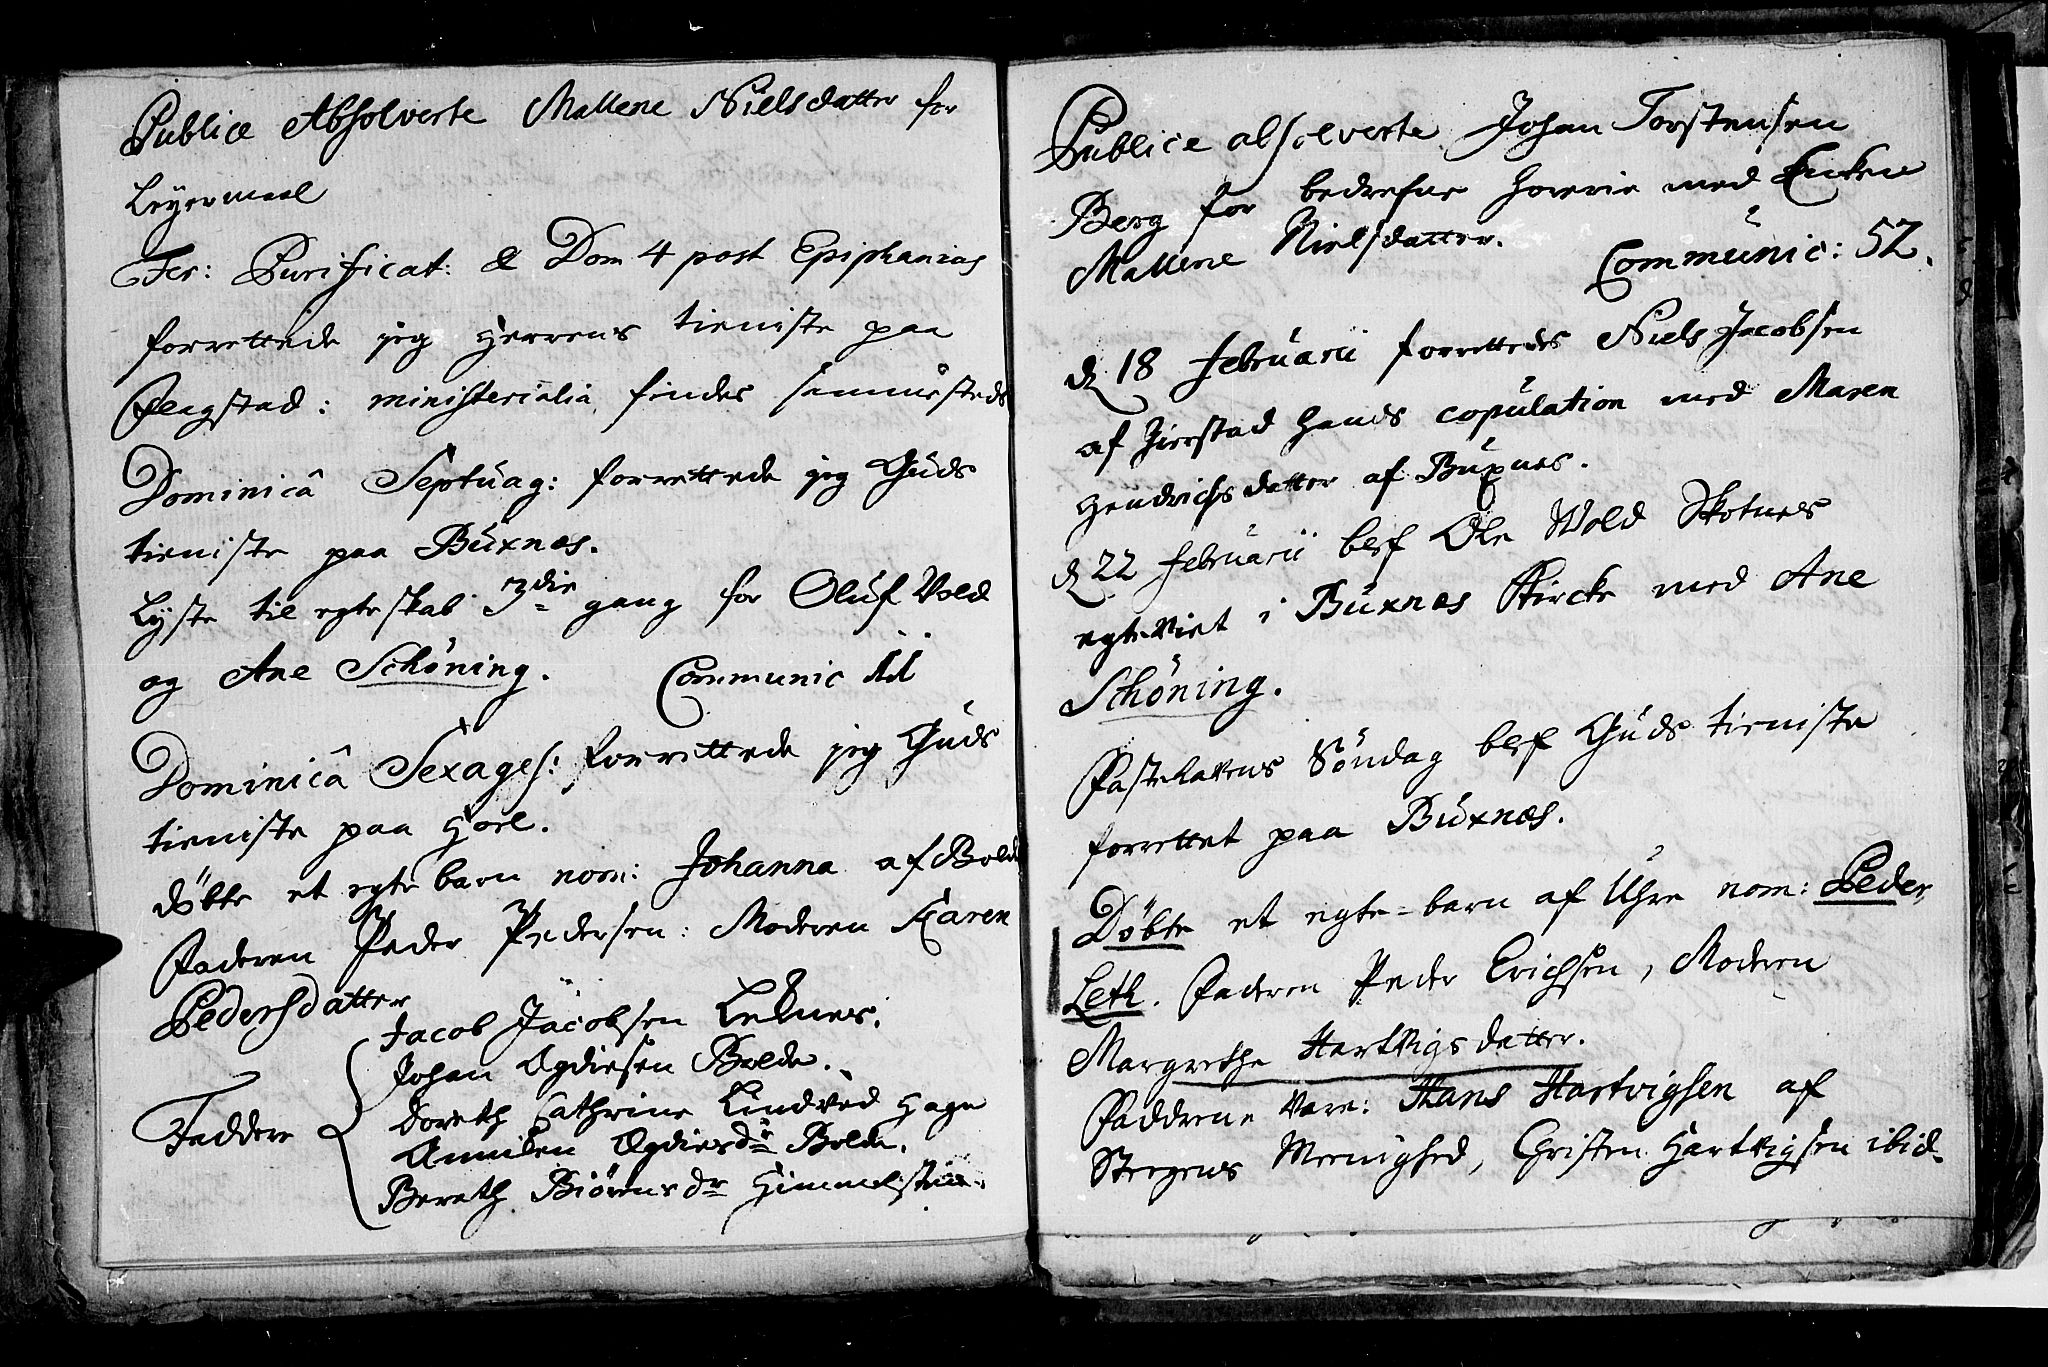 Publice Absolverte Mallene Nielsdatter for
Leyermaal
Fer: Purificat: & Dom 4 post Epiphanias
forrettede jeg Herrens tieniste paa
Flagstad: ministerialia findes sammesteds
Dominicâ Septuag: forrettede jeg Guds
tieniste paa Buxnæs.
Lyste til egteskab 3die gang for Oluf Vold
og Ane Schöning. Communic
Dominicâ Sexages: forrettede jeg Guds
tieniste paa Hoel.
döbte et egte barn nom: Johanna af Bolde
Faderen Peder Pedersen: Moderen Karen
Pedersdatter
Jacob Jacobsen Leknes.
Johan Ogdiesen Bolde.
Doreth Cathrine Lindved Hage
Faddere
Annilen Ogdiesdr Bolde.
Bereth Biörnsdr Himmelstein.
Publice absolverte Johan Torstensen
Berg for bedrefne horerie med Enken
Mallene Nielsdatter. Communic: 52.
d 18 Februarii forrettedes Niels Jacobsen
af Jerstad hands copulation med Maren
Hendrichsdatter af Buxnes.
d 22 Februarii blef Ole Wold Skotnes
egteviet i Buxnæs Kircke med Ane
Schöning.
Fastelavens Söndag blef Guds tieniste
forrettet paa Buxnæs.
Döbte et egte-barn af Uhre nom: Peder
Leth. Faderen Peder Erichsen, Moderen
Margrethe Hartvigsdatter.
Faddrene vare: Hans Hartvigsen af
Stegens Meenighed, Christen Hartvigsen ibid.